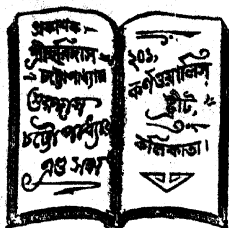 প্রকাশক:-
শ্রীহরিদাস
চট্টোপাধ্যায়
গুরুদাস
চট্টোপাধ্যায়
এণ্ড সন্স
২০১,
কর্ণওয়ালিস্
ষ্ট্রীট,
কলিকাতা।